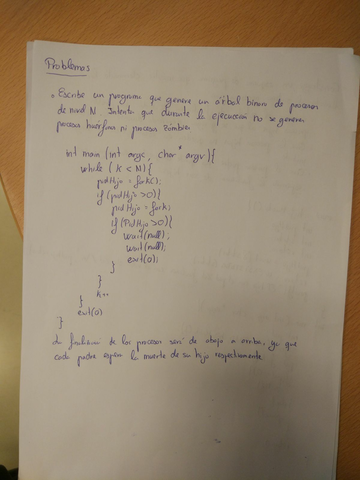 Problemas
• Escribe un programa que genere un árbol binario de procesos
de nivel N Intenta que durante la ejecución no se generen
procesos huérfanos ni procesos zombies
int main (int argc, char * argv){
while (K < N){
pidHijo = fork();
if (pidHijo >0){
pidHijo = fork;
if (PidHijo >0){
wait(null);
wait(null);
exit(0);
}
}
K++
}
exit(0)
}
La finalización de los procesos será de abajo a arriba, ya que
cada padre espera la muerte de su hijo respectivamente